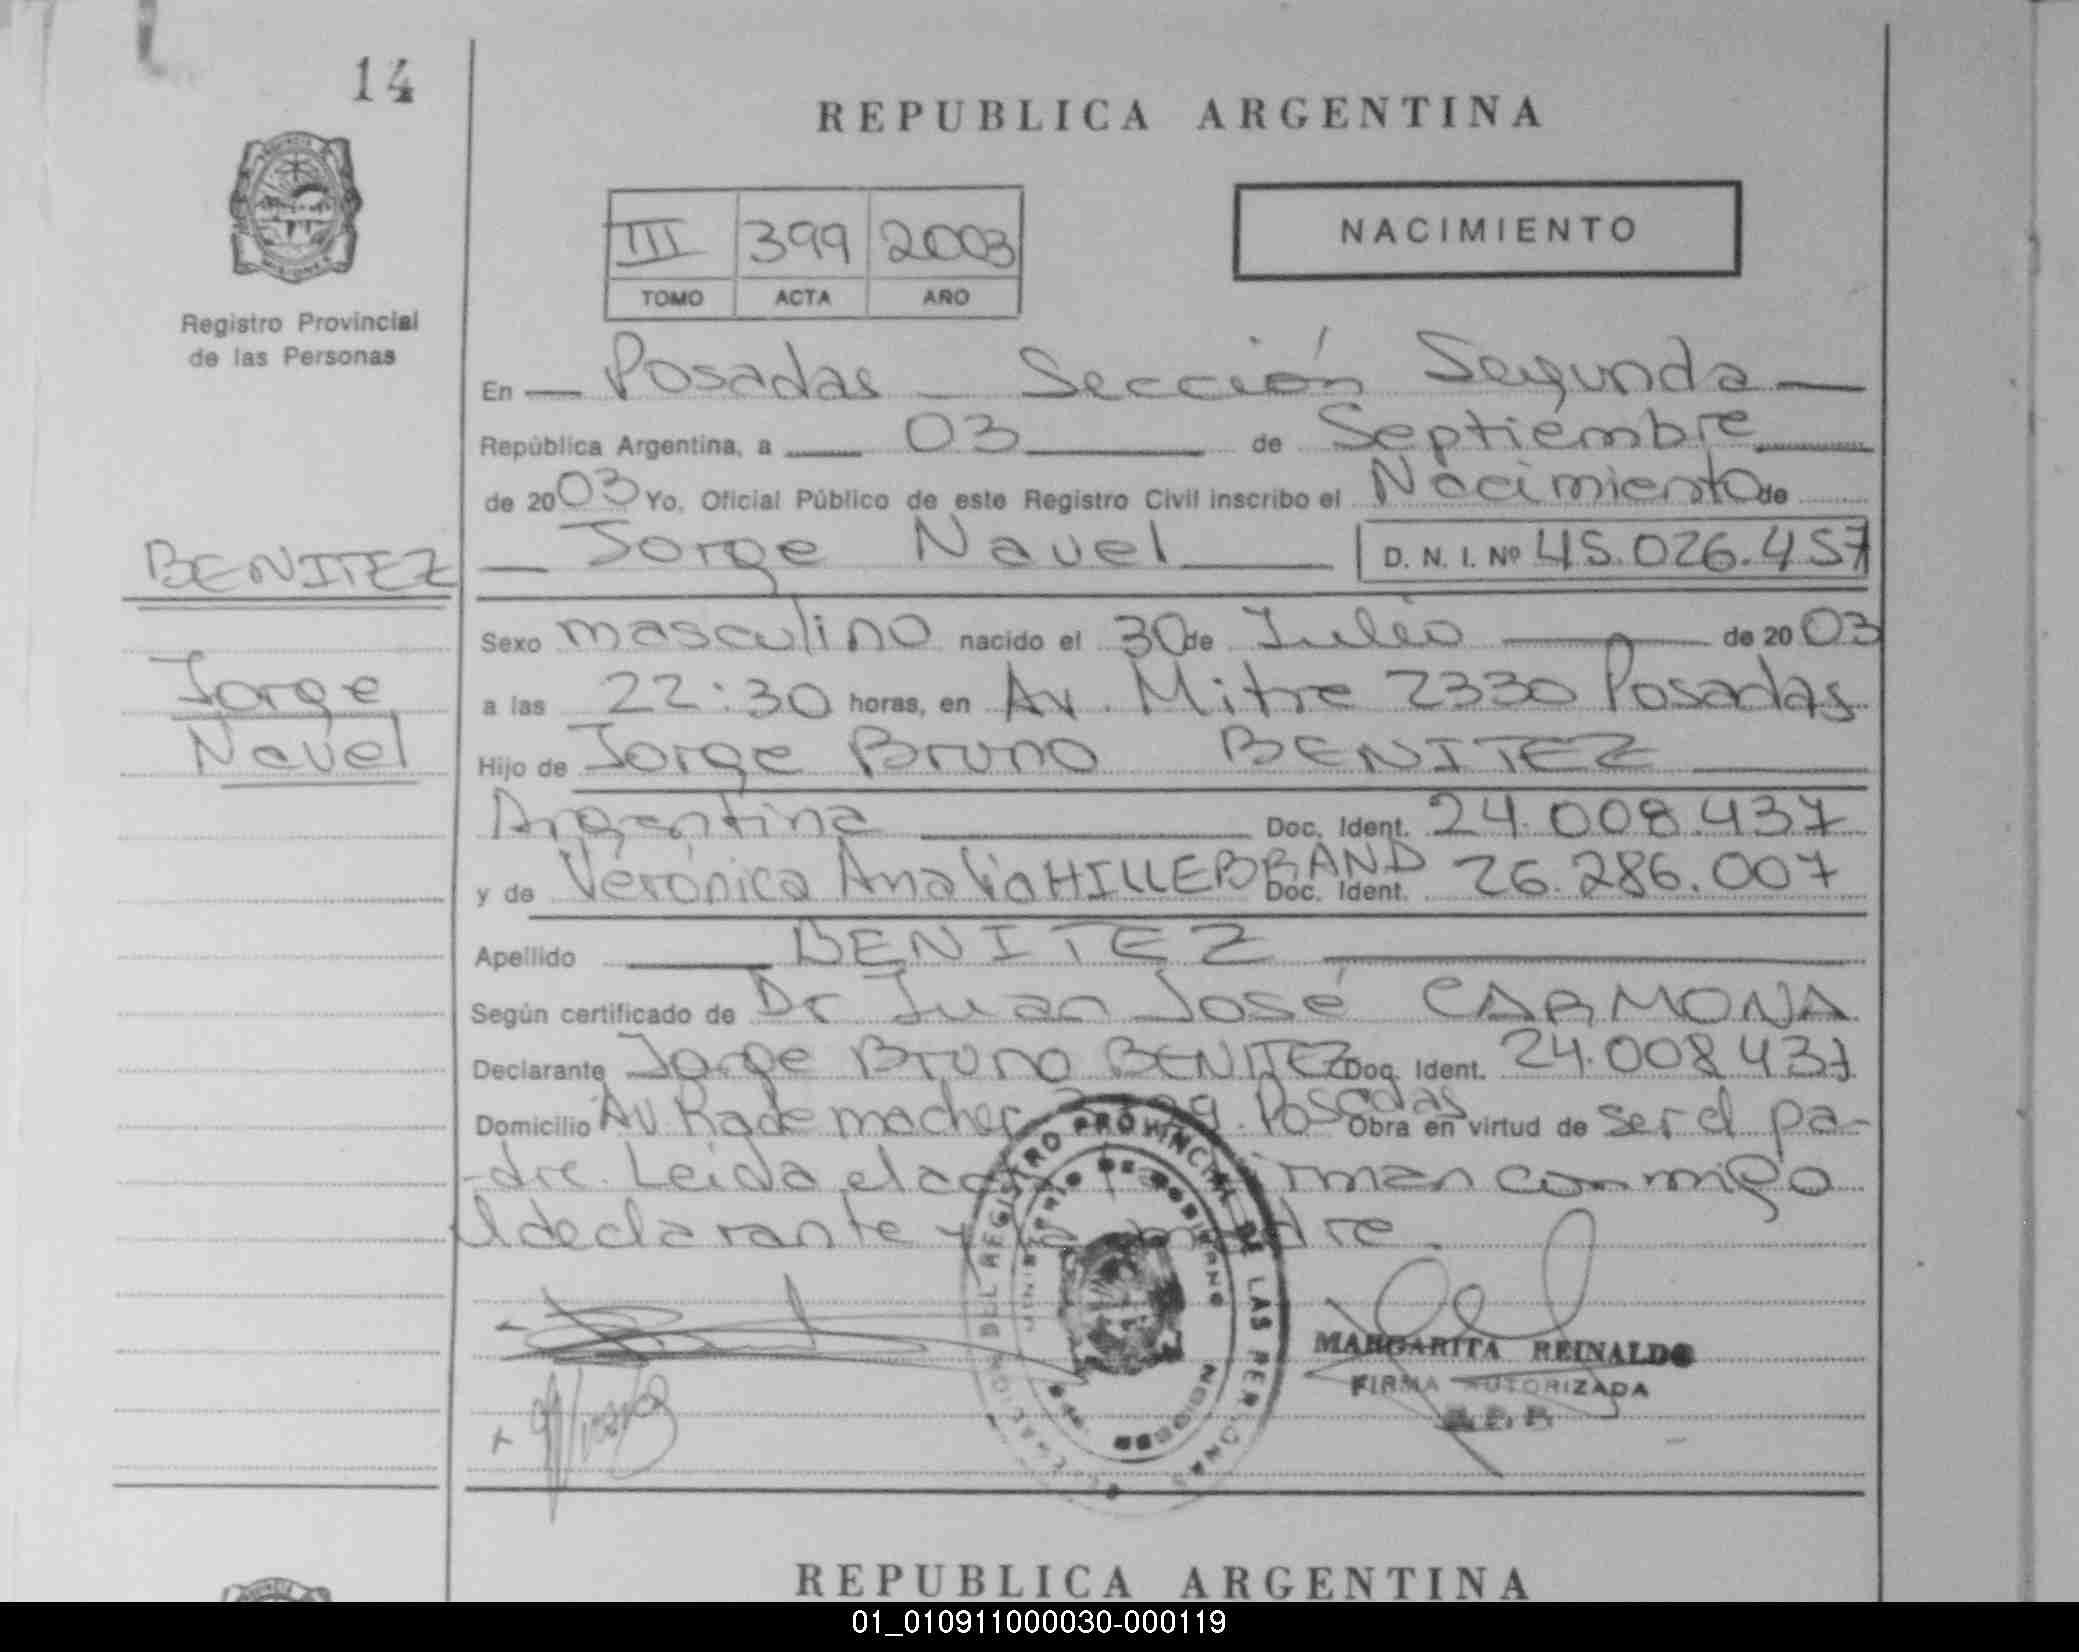 14
REPUBLICA ARGENTINA
III 399 2003
TOMO ACTA AÑO
NACIMIENTO
Registro Provincial
de las Personas
En Posadas - Sección Segunda
República Argentina, a 03 de Septiembre
de 2003 Yo, Oficial Público de este Registro Civil inscribo el Nacimiento de
Jorge Nauel D. N. I. Nº 45.026.457
BENITEZ
Jorge
Nauel
Sexo masculino nacido el 30 de Julio de 2003
a las 22:30 horas, en Av. Mitre 2330 Posadas
Hijo de Jorge Bruno BENITEZ
Argentina Doc. Ident. 24.008.437
y de Verónica Analia HILLEBRAND Doc. Ident. 26.286.007
Apellido BENITEZ
Según certificado de Dr Juan José CARMONA
Declarante Jorge Bruno BENITEZ Doc. Ident. 24.008.437
Domicilio Av. Rademacher Posadas Obra en virtud de ser el pa-
-dre. Leida el acta firman conmigo
el declarante y la madre.
DEL REGISTRO PROVINCIAL DE LAS PERSONAS
MINISTERIO DE GOBIERNO
MARGARITA REINALDO
FIRMA AUTORIZADA
REPUBLICA ARGENTINA
01_010911000030-000119